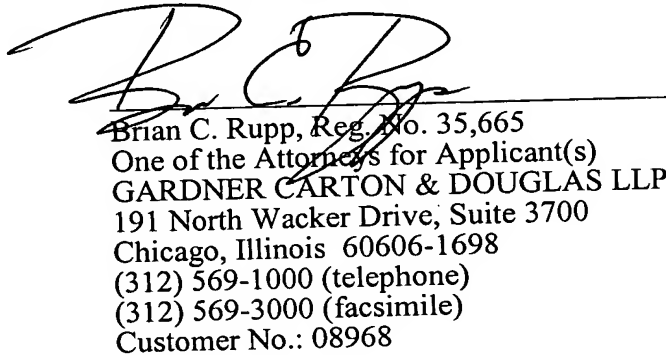 Brian C. Rupp, Reg. No. 35,665
One of the Attorneys for Applicant(s)
GARDNER CARTON & DOUGLAS LLP
191 North Wacker Drive, Suite 3700
Chicago, Illinois 60606-1698
(312) 569-1000 (telephone)
(312) 569-3000 (facsimile)
Customer No.: 08968